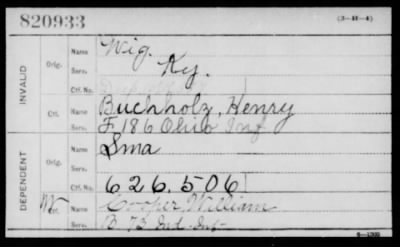 820933
(3-H-4)
INVALID
Orig.
Name Wig.
Serv. Ky.
Ctf. No.
Ctf.
Name Buchholz, Henry
Serv. F, 186 Ohio Inf
DEPENDENT
Orig.
Name Sma
Serv.
Ctf. No. 626.506
W Ctf.
Name Cooper, William
Serv. B. 73 Ind. Inf-